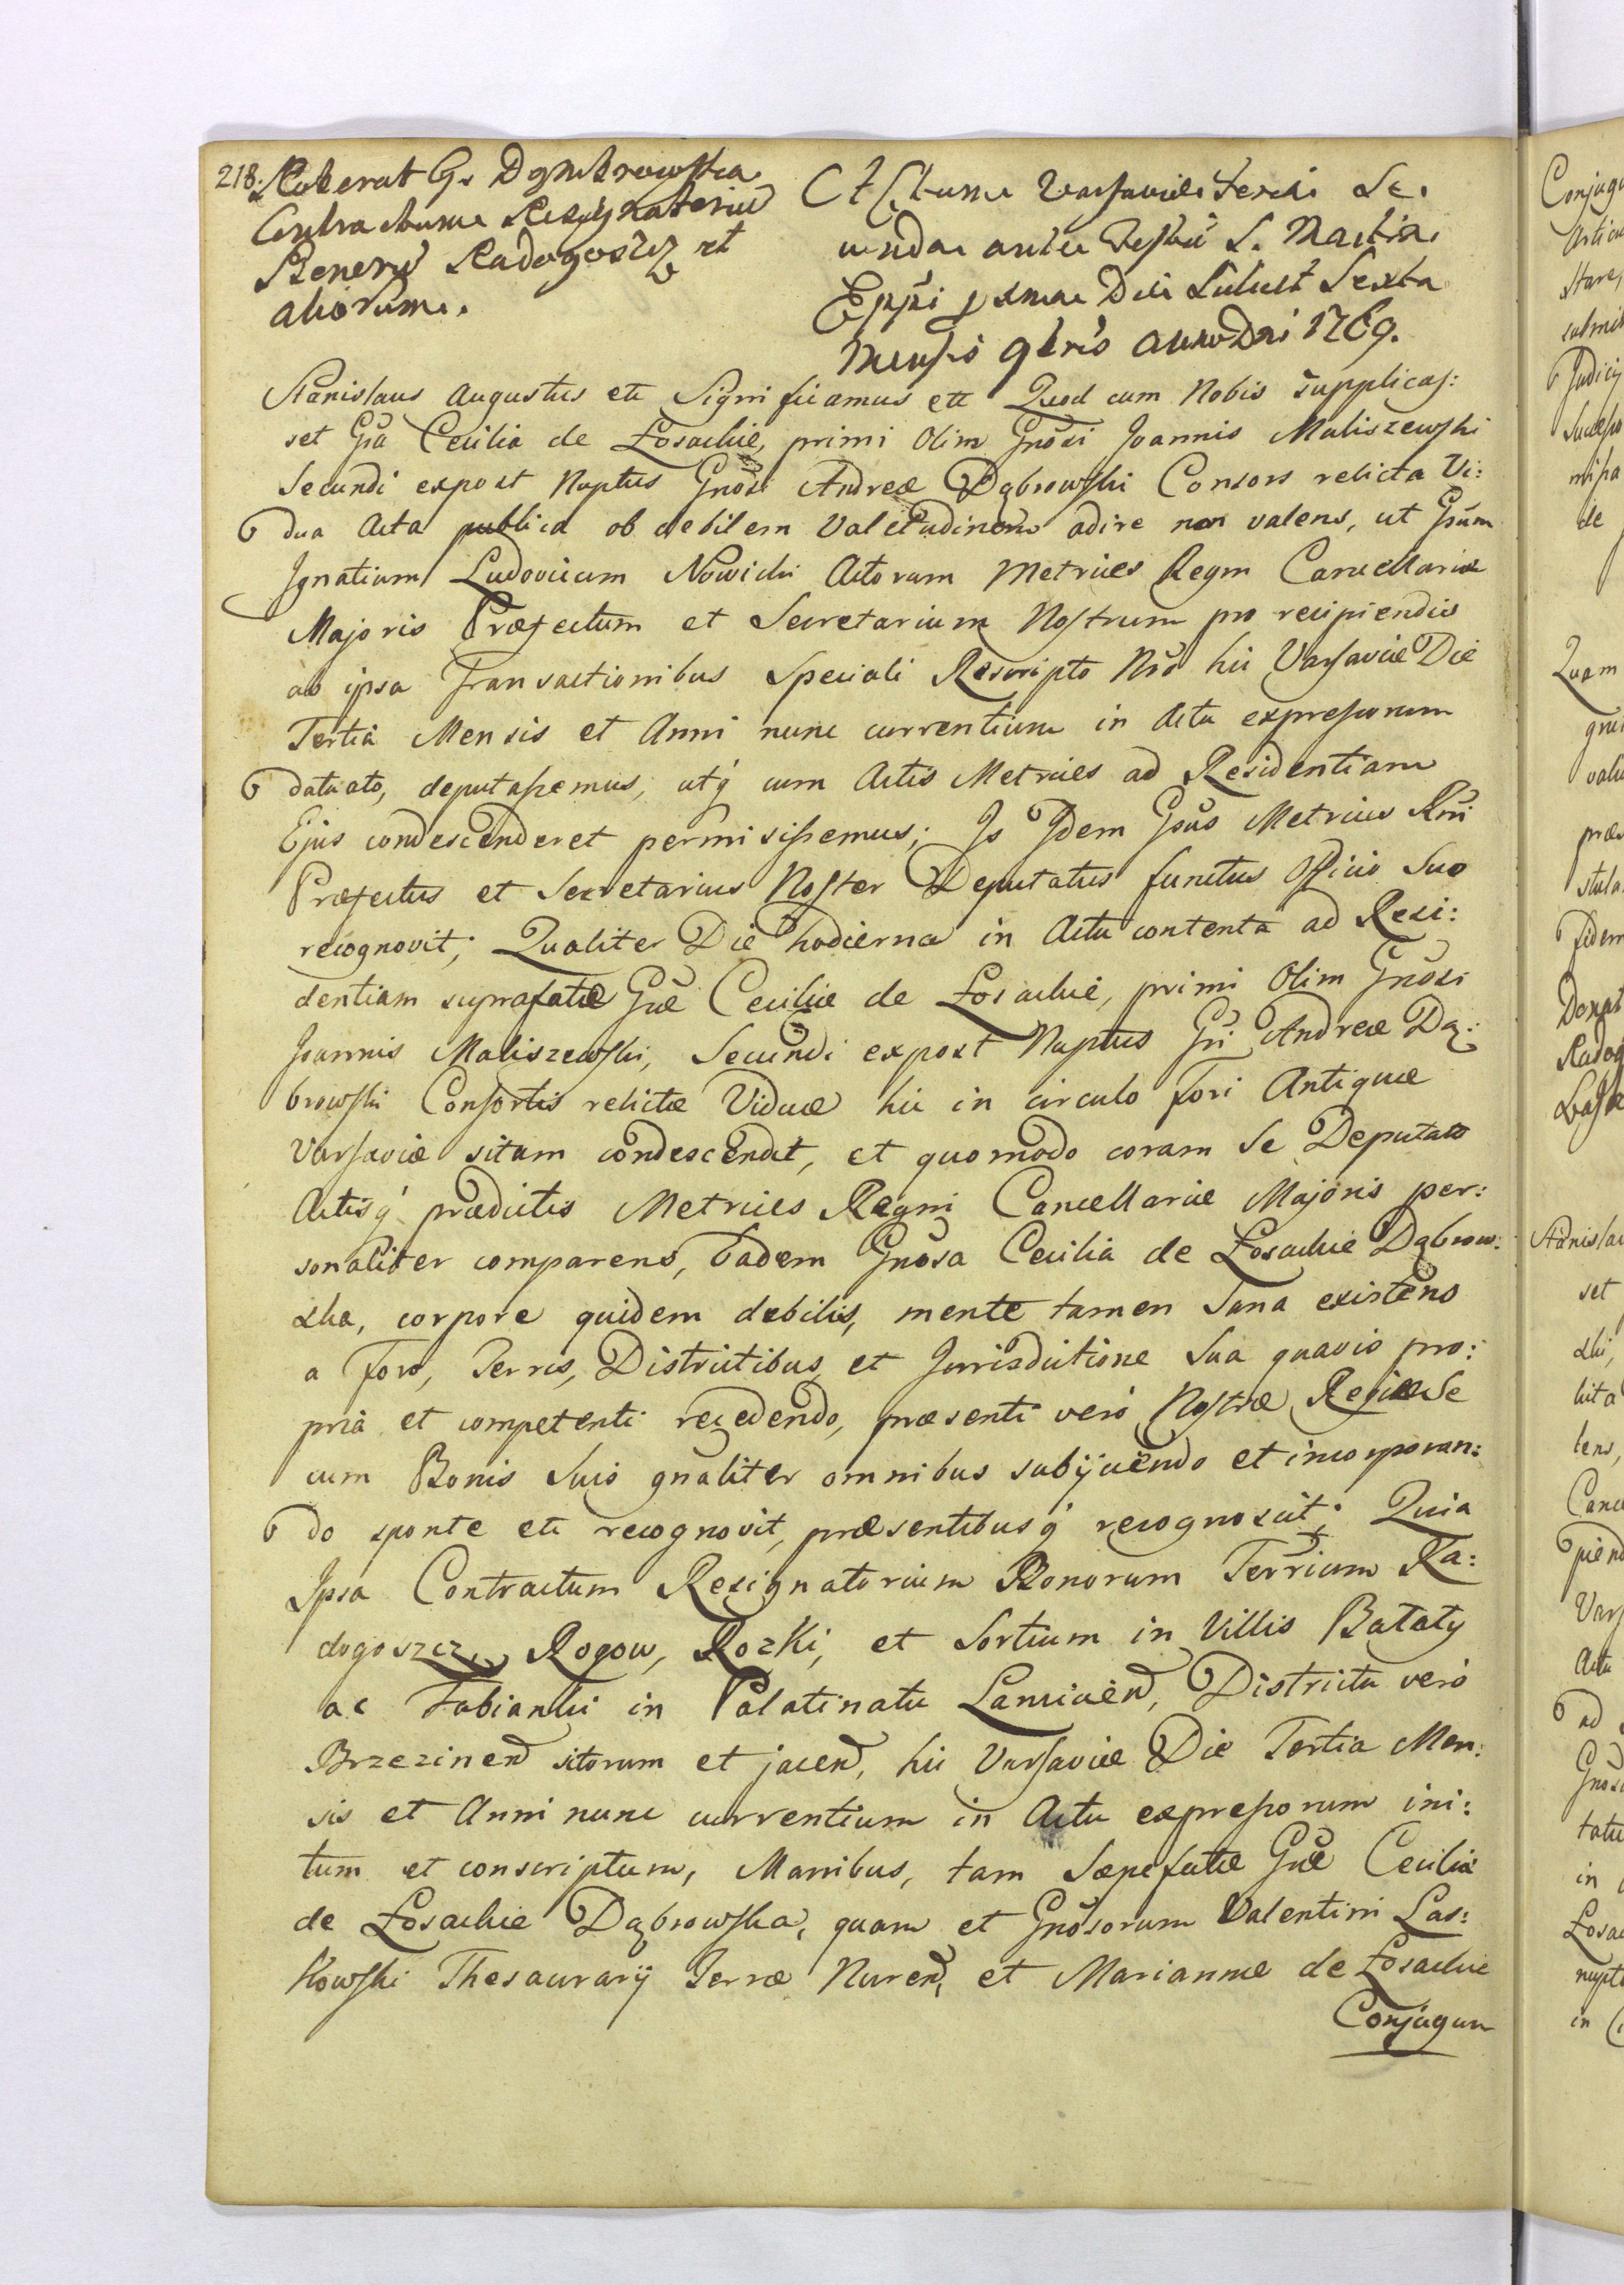 218.
Roborat G. Dąmbrowska
Contractum Resignatorium
Bonorũ Radogoszcz et
aliorum.
Actum Varsaviæ Feria Se-
cunda ante Festũ S. Martini
Eppi proxima Die Scilicet Sexta
Mensis 9bris anno Dni 1769.
Stanislaus Augustus etc Significamus etc Quod cum Nobis supplicas:
set Gsa Cecilia de Łosackie, primi Olim Gnosi Joannis Maliszewski
Secundi expost Nuptus Gnosi Andreæ Dąbrowski Consors relicta Vi:
dua Acta publica ob debilem Valetudinem adire non valens, ut Gsum
Ignatium Ludovicum Nowicki Actorum Metrices Regni Cancellariæ
Majoris Præfectum et Secretarium Nostrum pro recipiendis
ab ipsa Transactionibus Speciali Rescripto Nro hic Varsaviæ Die
Tertia Mensis et Anni nunc currentium in Actu expressorum
datato, deputassemus, utq́ cum Actis Metrices ad Residentiam
Ejus condescenderet permisissemus; Is Idem Gsus Metrices Rni
Præfectus et Secretarius Noster Deputatus functus Officio Suo
recognovit; Qualiter Die hodierna in Actu contenta ad Resi:
dentiam suprafatæ Gsæ Ceciliæ de Łosackie, primi Olim Gnosi
Joannis Maliszewski, Secundi expost Nuptus Gsi Andreæ Dą:
browski Consortis relictæ Viduæ hic in circulo Fori Antiquæ
Varsaviæ sitam condescendit, et quomodo coram Se Deputato
Actisq́ prædictis Metrices Regni Cancellariæ Majoris per:
sonaliter comparens, Eadem Gnosa Cecilia de Łosackie Dąbrow:
ska, corpore quidem debilis, mente tamen Sana existens
a Foro, Terris, Districtibus, et Jurisdictione Sua quavis pro:
pria et competenti recedendo, præsenti verò Nostræ Regiæ Se
cum Bonis Suis gnaliter omnibus subijciendo et incorporan:
do sponte etc recognovit, præsentibusq́ recognoscit; Quia
Ipsa Contractum Resignatorium Bonorum Terrium Ra:
dogoszcz, Rogow, Rozki, et Sortium in Villis Bataty
ac Fabianki in Palatinatu Lanciciеñ, Districtu verò
Brzezineñ sitorum et jaceñ, hic Varsaviæ Die Tertia Men:
sis et Anni nunc currentium in Actu expressorum ini:
tum et conscriptum, Manibus, tam Sæpefatæ Gsæ Ceciliæ
de Łosackie Dąbrowska, quam et Gnosorum Valentini Las:
kowski Thesaurarij Terræ Nureñ, et Mariannæ de Łosackie
Conjugum